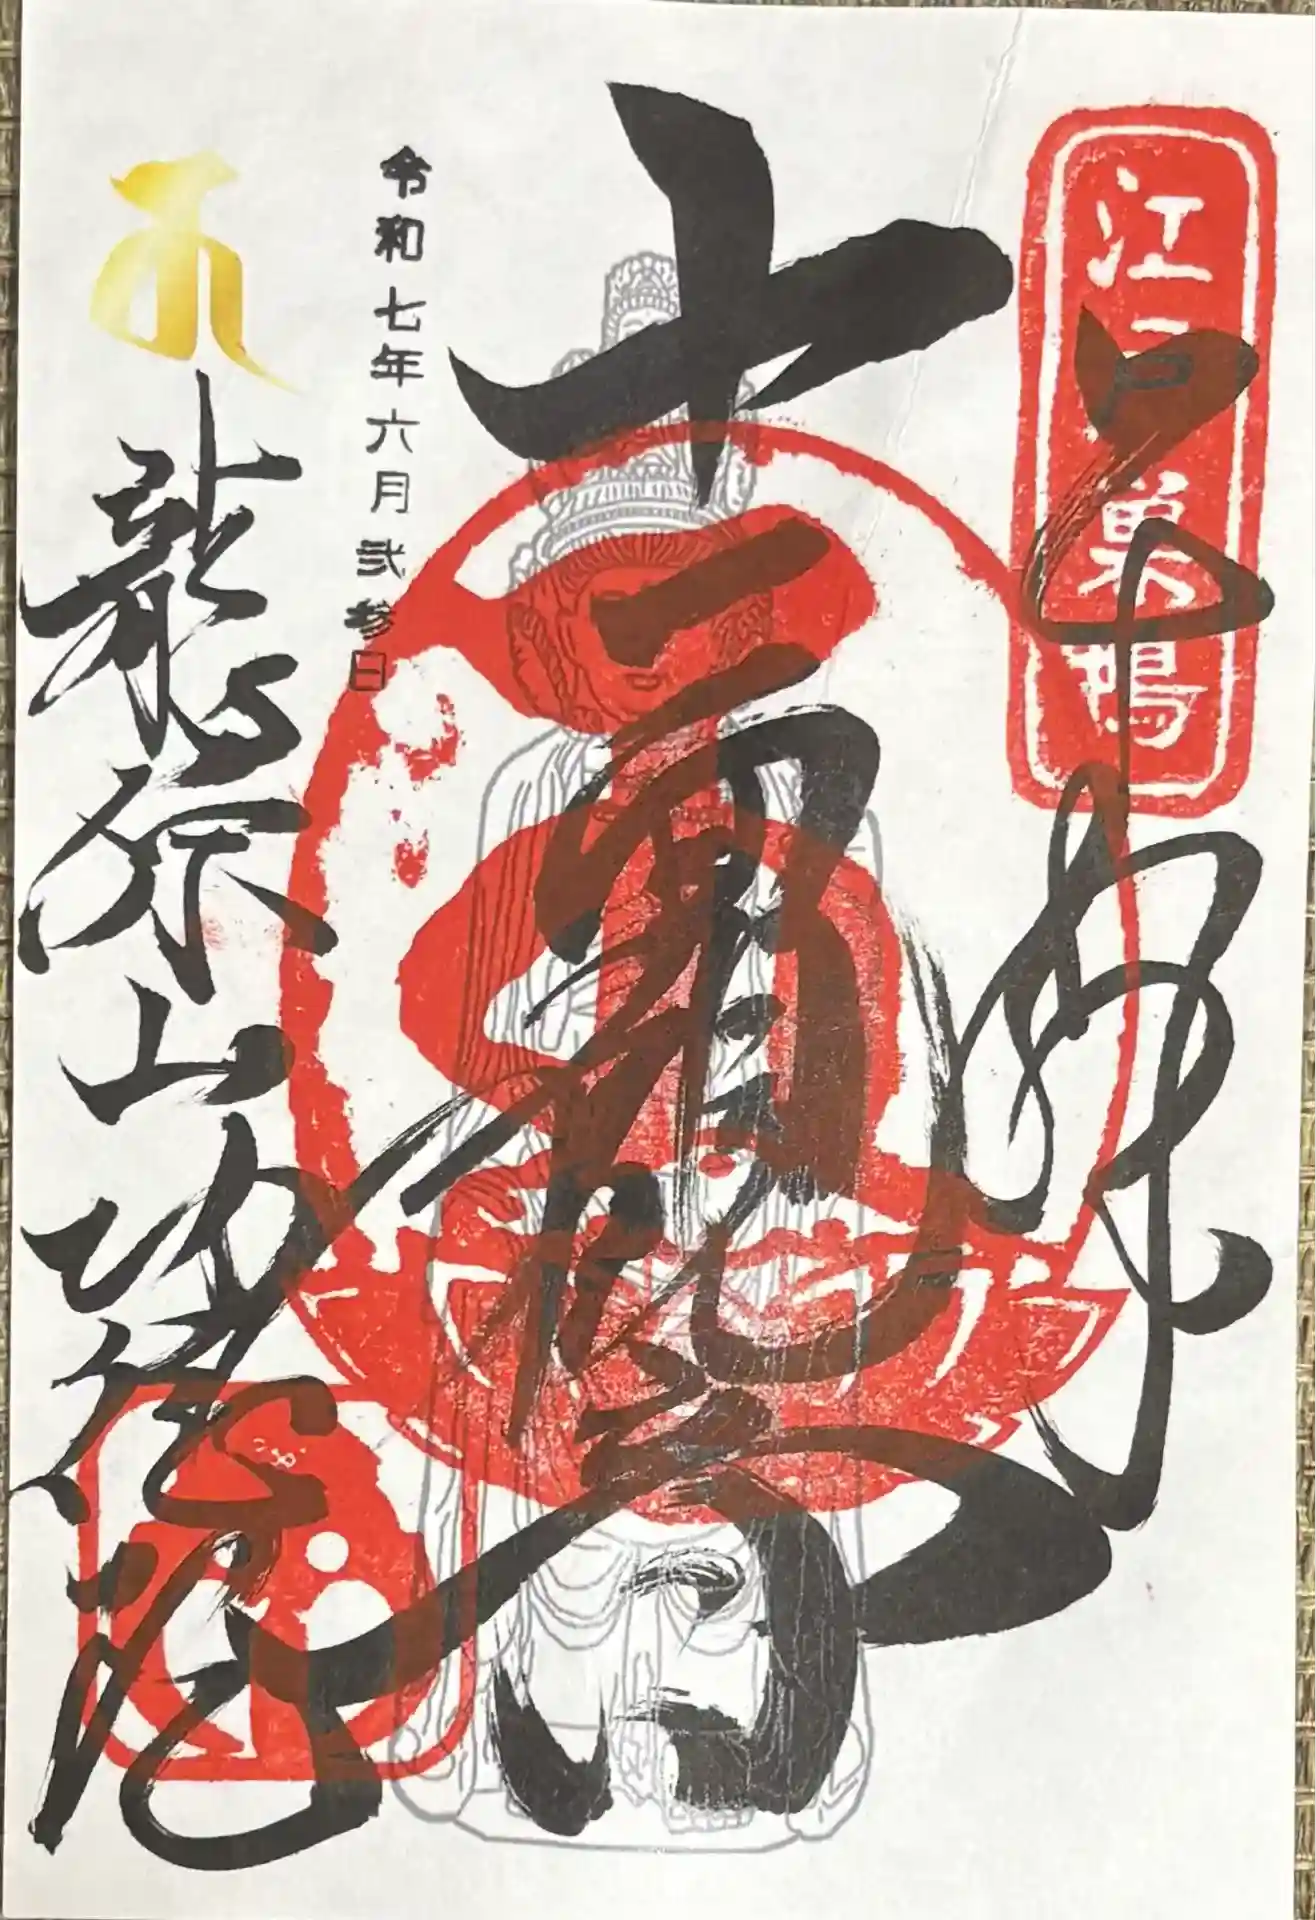 江戸巣鴨
奉拝
十一面観音
令和七年六月弐参日
龍 山功徳院